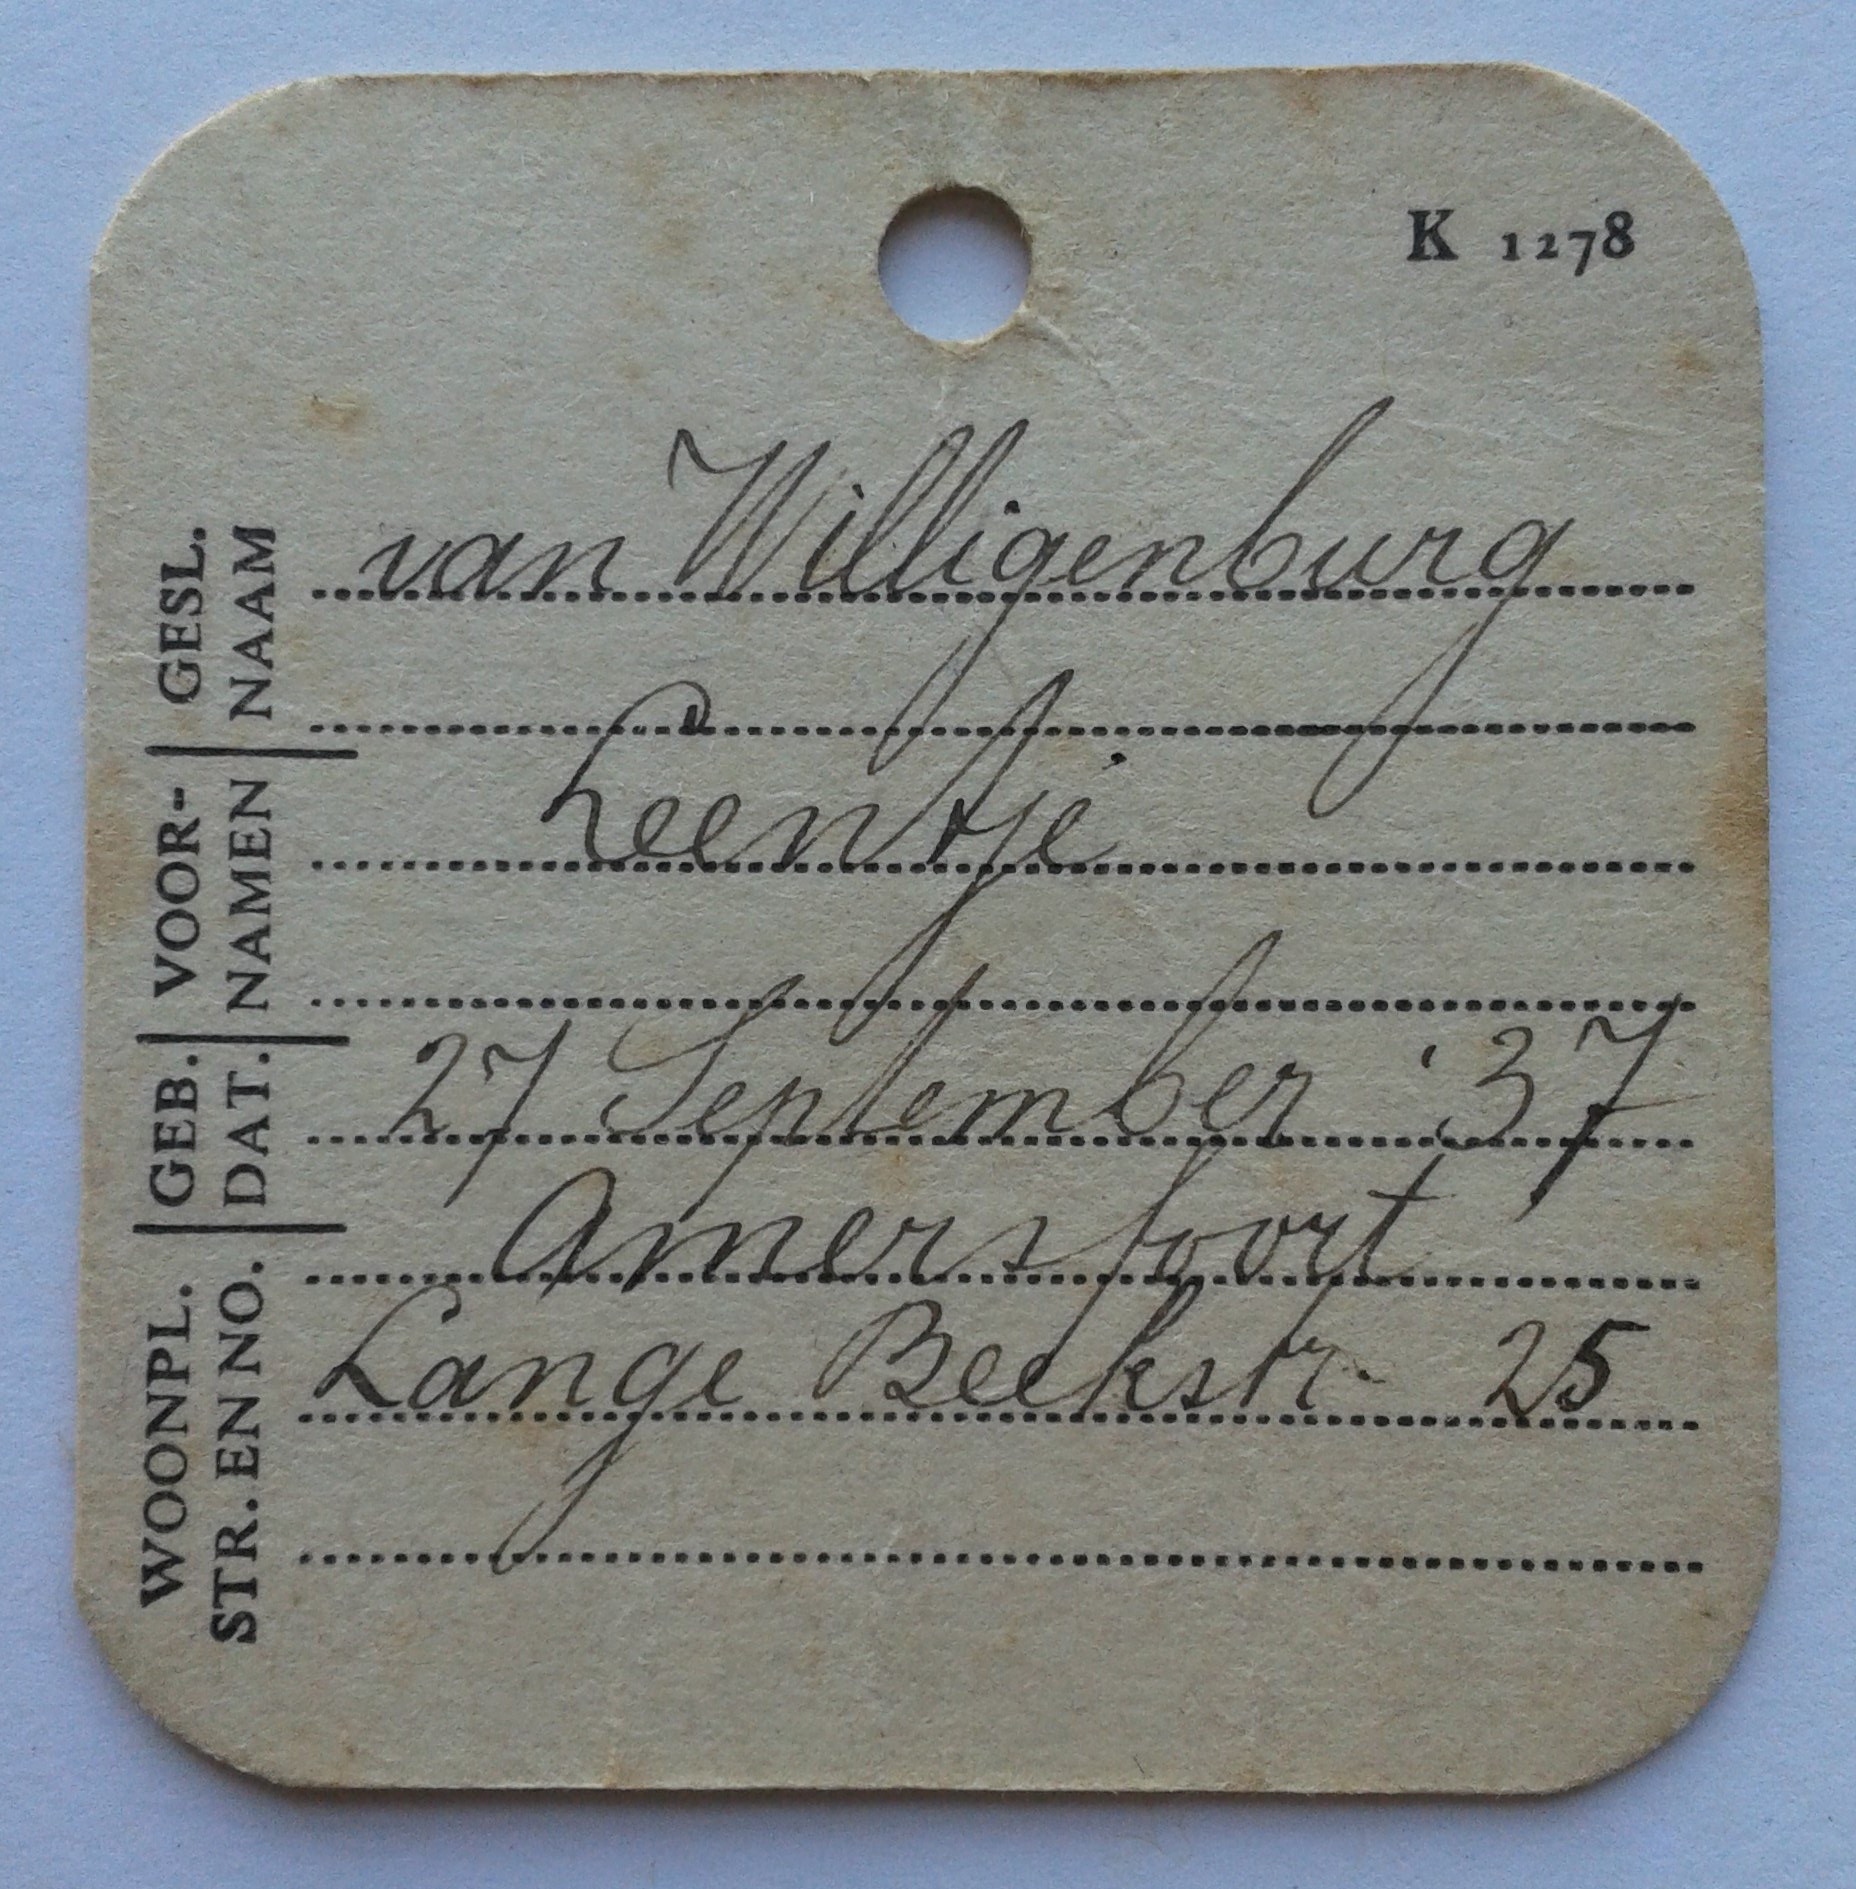 K 1278
GESL. NAAM
van Willigenburg
VOOR- NAMEN
Leentje
GEB. DAT.
27 September '37
WOONPL. STR. EN NO.
Amersfoort
Lange Beekstr. 25